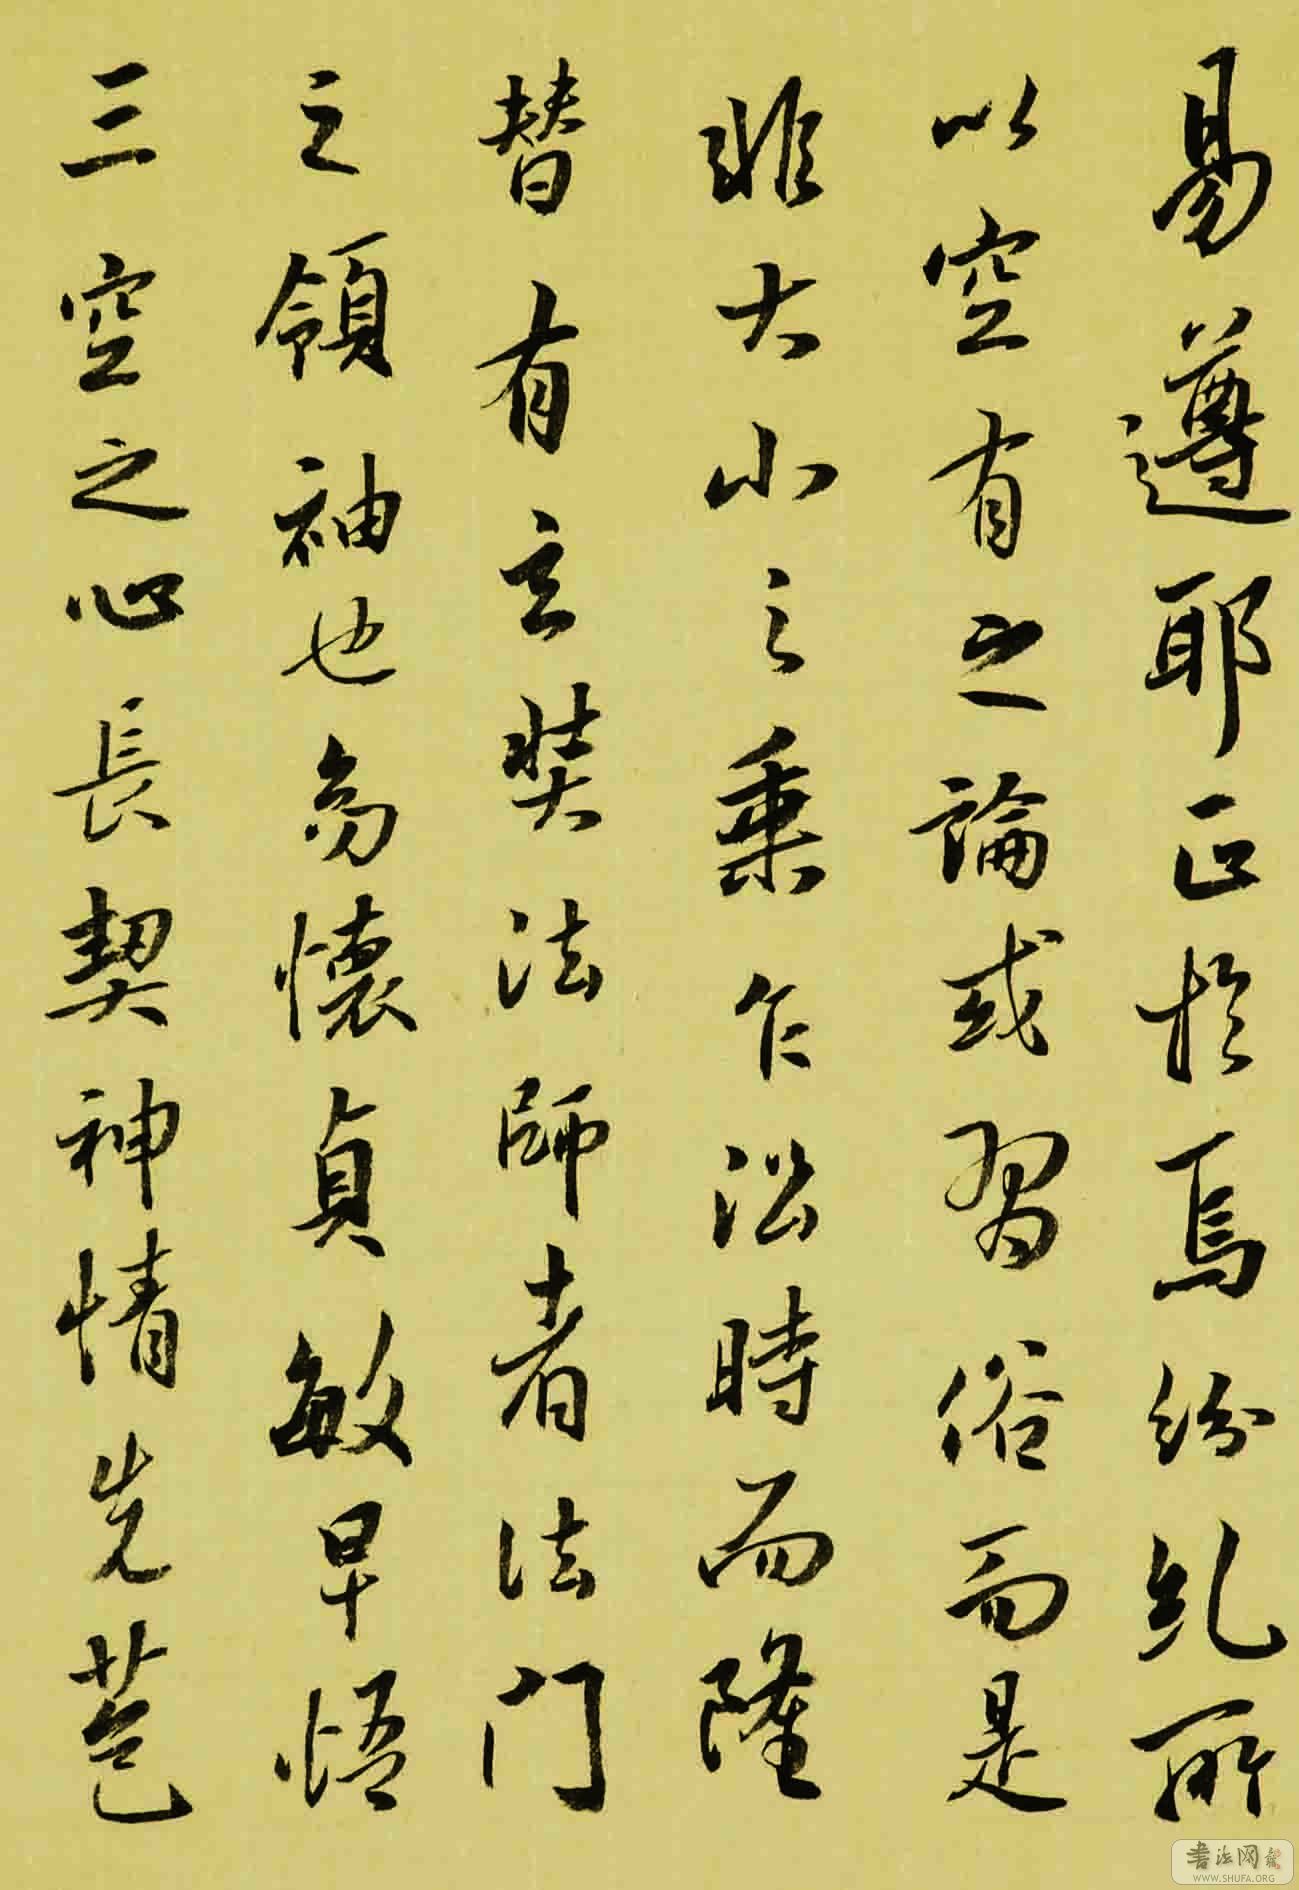 易遵耶正於焉紛糺所
以空有之論或習俗而是
非大小之乘乍沿時而隆
替有玄奘法師者法門
之領袖也幼懷貞敏早悟
三空之心長契神情先苞
書法网
WWW.SHUFA.ORG